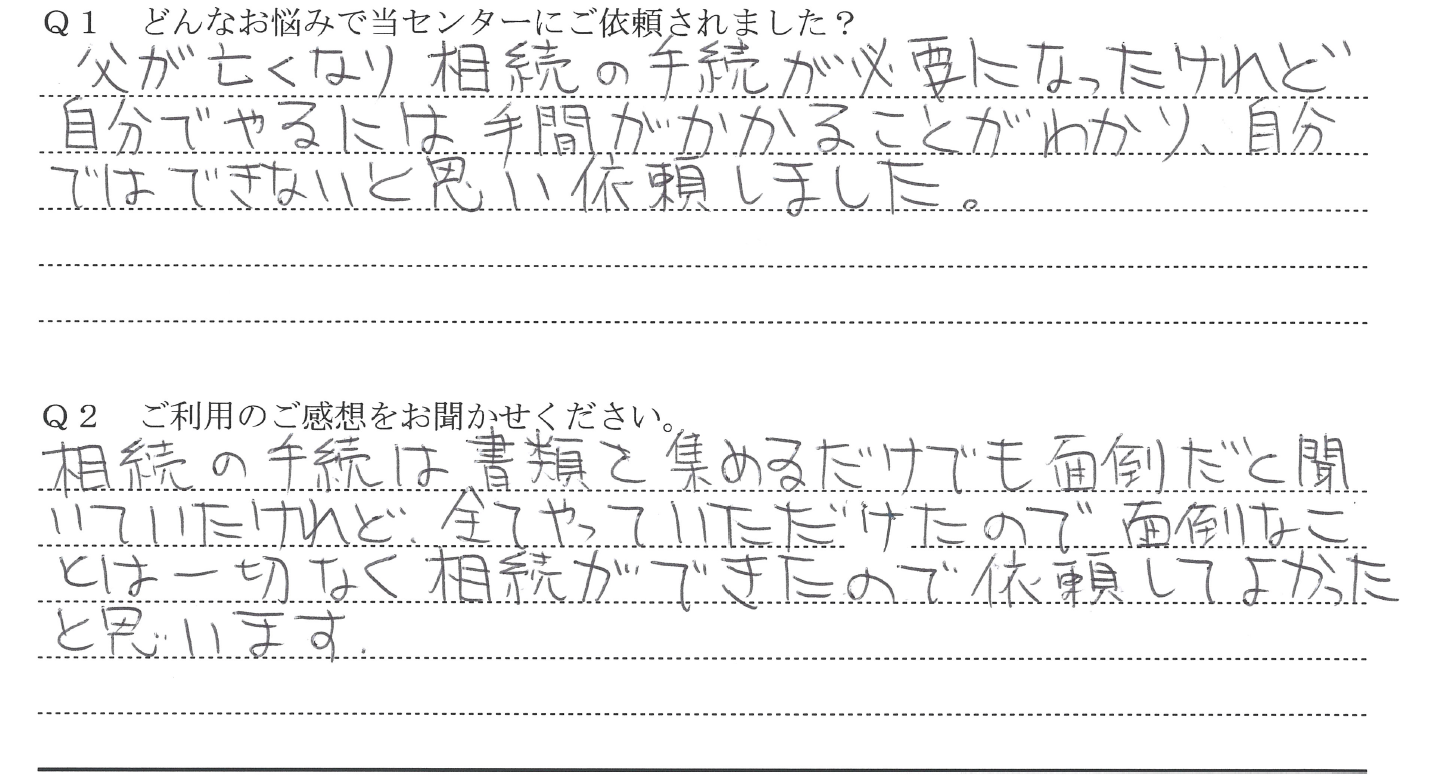 Q1 どんなお悩みで当センターにご依頼されました?
父が亡くなり相続の手続が必要になったけれど
自分でやるには手間がかかることがわかり、自分
ではできないと思い依頼しました。
Q2 ご利用のご感想をお聞かせください。
相続の手続は書類を集めるだけでも面倒だと聞
いていたけれど、全てやっていただけたので面倒なこ
とは一切なく相続ができたので依頼してよかった
と思います.